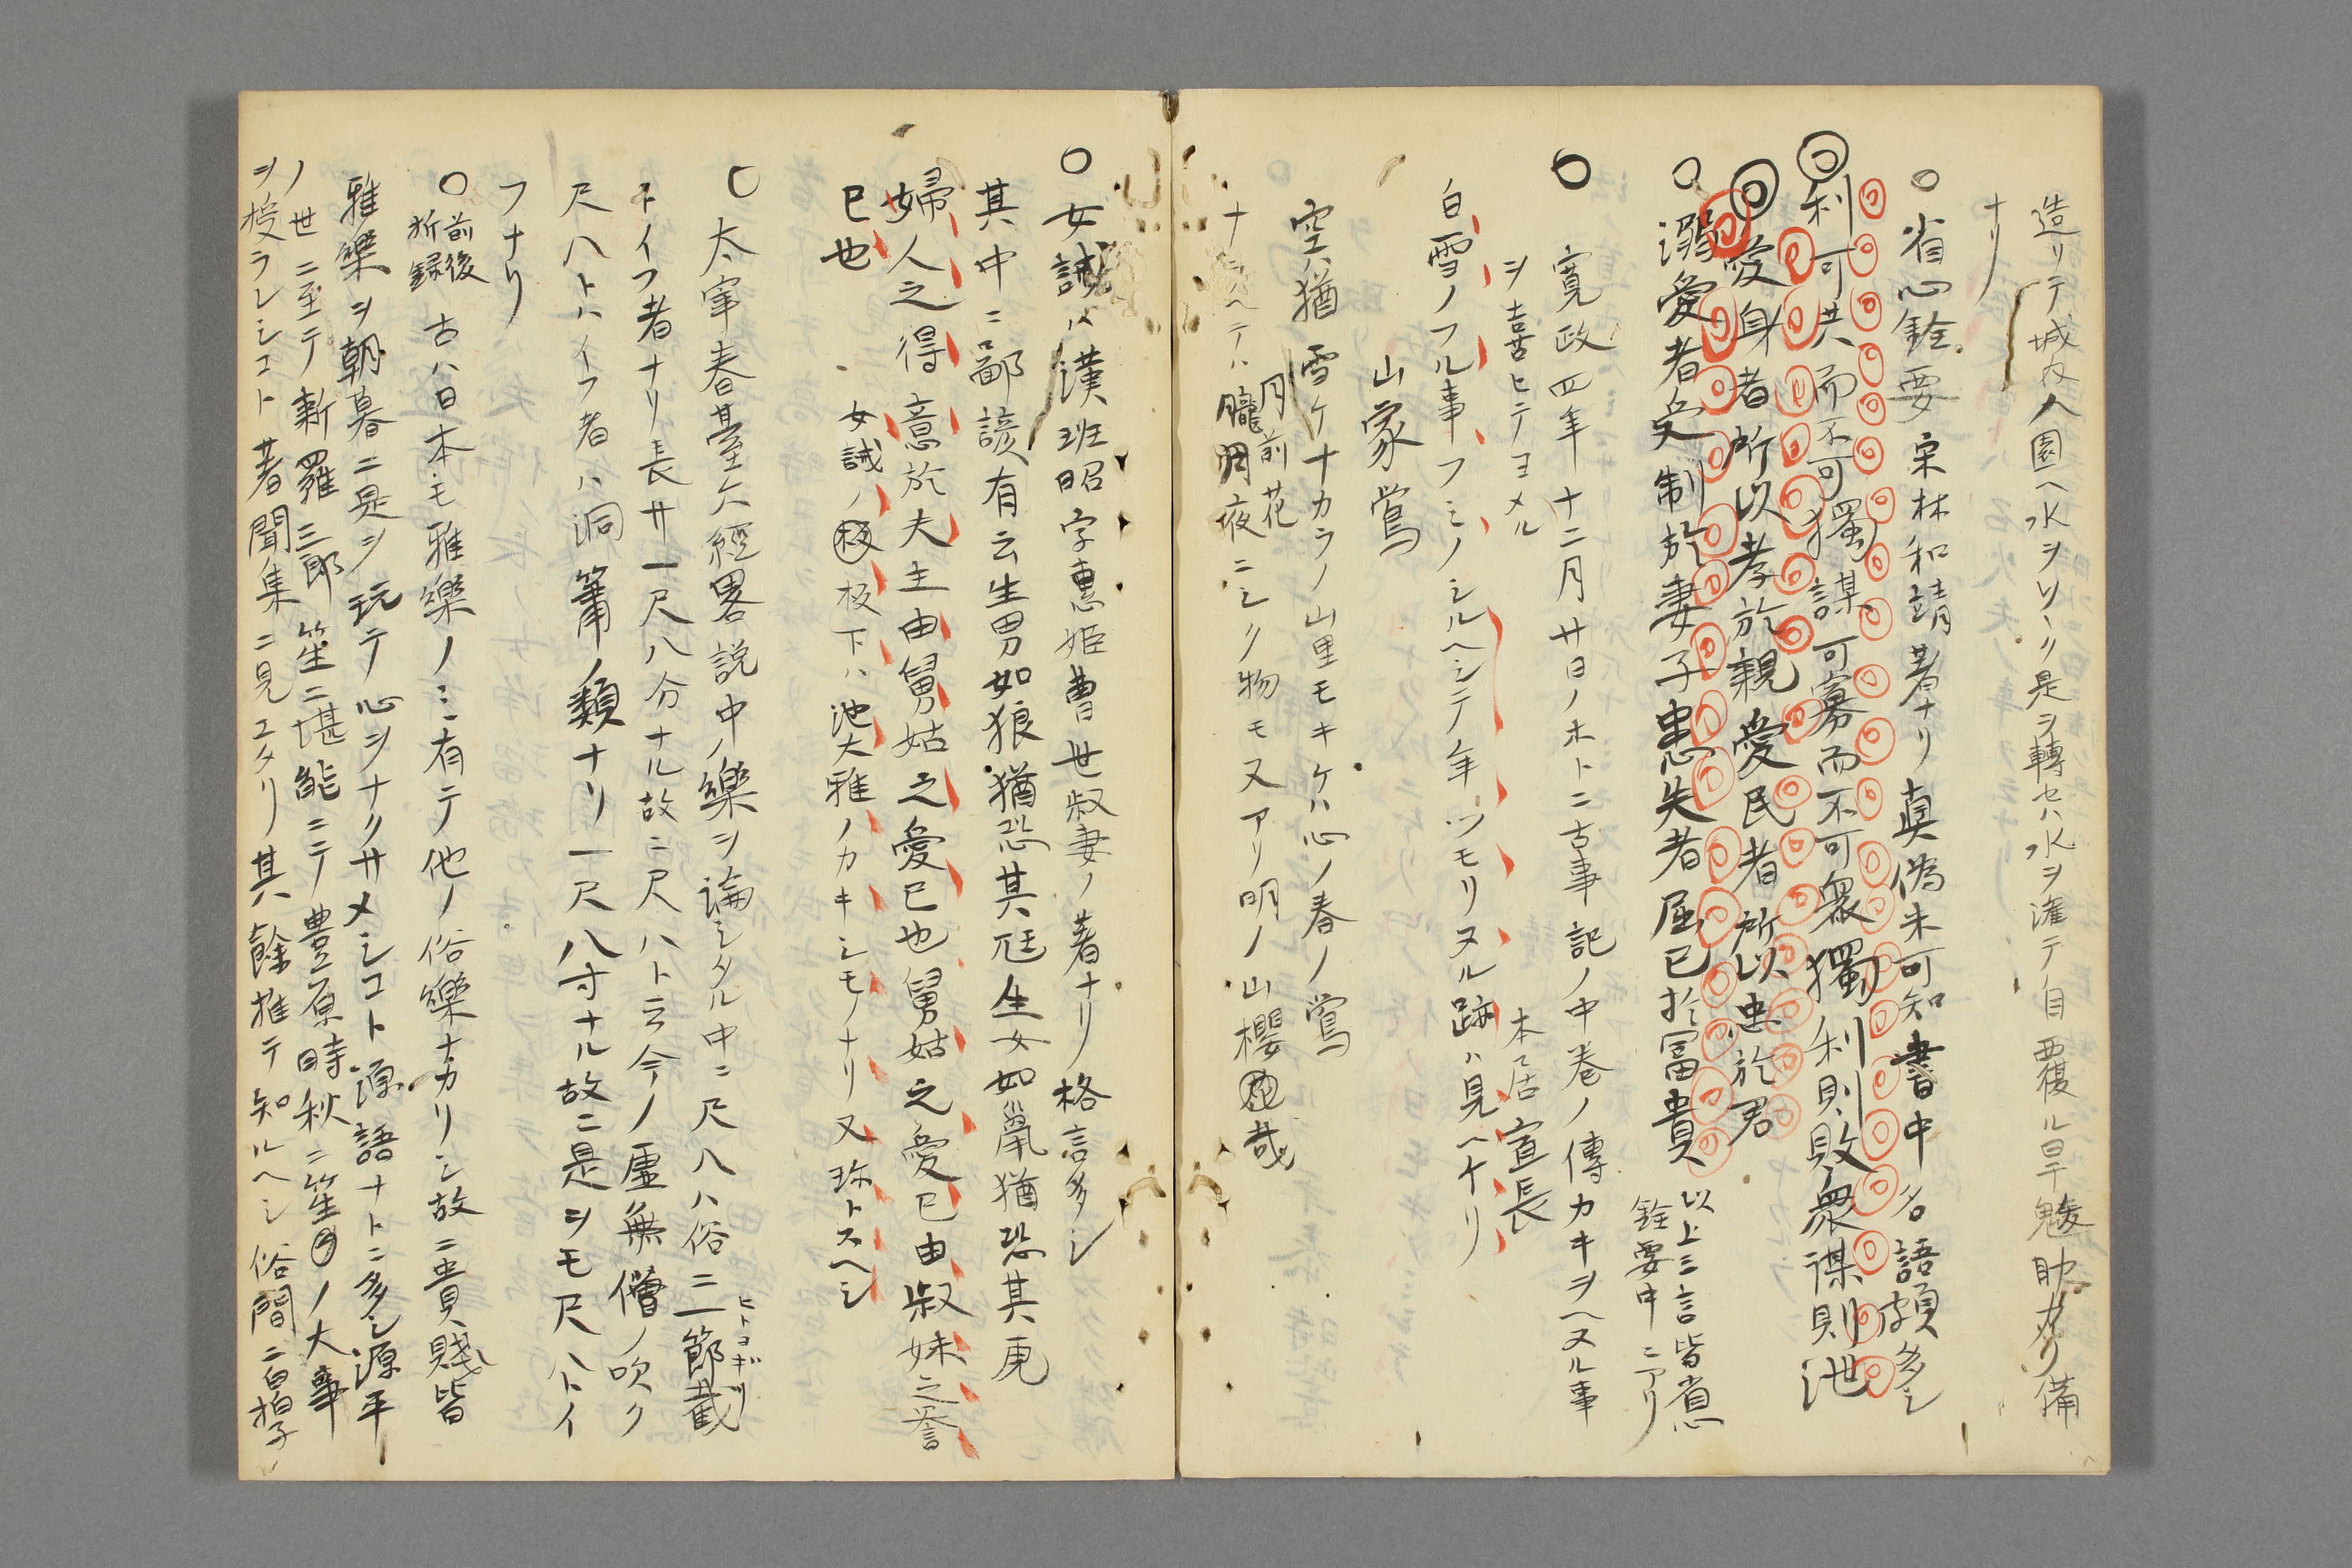 造リテ城内ノ園ヘ水ヲソヽリ是ヲ轉セハ水ヲ灌テ自覆ル旱魃助カリ備
ナリ
○省心銓要宋林和靖著ナリ真偽未可知書中名語頗多シ
利可共而不可獨謀可寡而不可衆獨利則敗衆謀則泄
愛身者所以孝於親愛民者所以忠於君
○溺愛者受制於妻子患失者屈已於冨貴
以上三言皆省心
銓要中ニアリ
○寛政四年十二月廿日ノホトニ古事記ノ中巻ノ傳カキヲヘヌル事
ヲ喜ヒテヨメル 本居宣長
白雪ノフル事フミノシルヘシテ年ツモリヌル跡ハ見ヘケリ
山家鶯
空猶雪ケナカラノ山里モキケハ心ノ春ノ鶯
月前花
ナヘテハ朧月夜ニシク物モ又アリ明ノ山櫻哉
○女誡ハ漢班昭字惠姫曹世叔妻ノ著ナリ格言多シ
其中ニ鄙諺有云生男如狼猶恐其尫生女如鼠猶恐其虎
婦人之得意於夫主由舅姑之愛已也舅姑之愛已由叔妹之誉
已也 女誡ノ板下ハ池大雅ノカキシモノナリ又珎トスヘシ
○太宰春臺六經畧説中ノ樂ヲ論シタル中ニ尺八ハ俗ニ一節截
ヒトヨギリ
トイフ者ナリ長サ一尺八分ナル故ニ尺八ト云今ノ虚無僧ノ吹ク
尺八トハイフ者ハ洞簫ノ類ナリ一尺八寸ナル故ニ是ヲモ尺八トイ
フナリ
○前後
析録
古ハ日本モ雅樂ノミ有テ他ノ俗樂ナカリシ故ニ貴賤皆
雅樂ヲ朝暮ニ是ヲ玩テ心ヲナクサメシコト源語ナトニ多シ源平
ノ世ニ至テ新羅三郎笙ニ堪能ニテ豊原時秋ニ笙ノ大事
ヲ授ラレシコト著聞集ニ見エタリ其餘推テ知ルヘシ俗間ニ白拍子